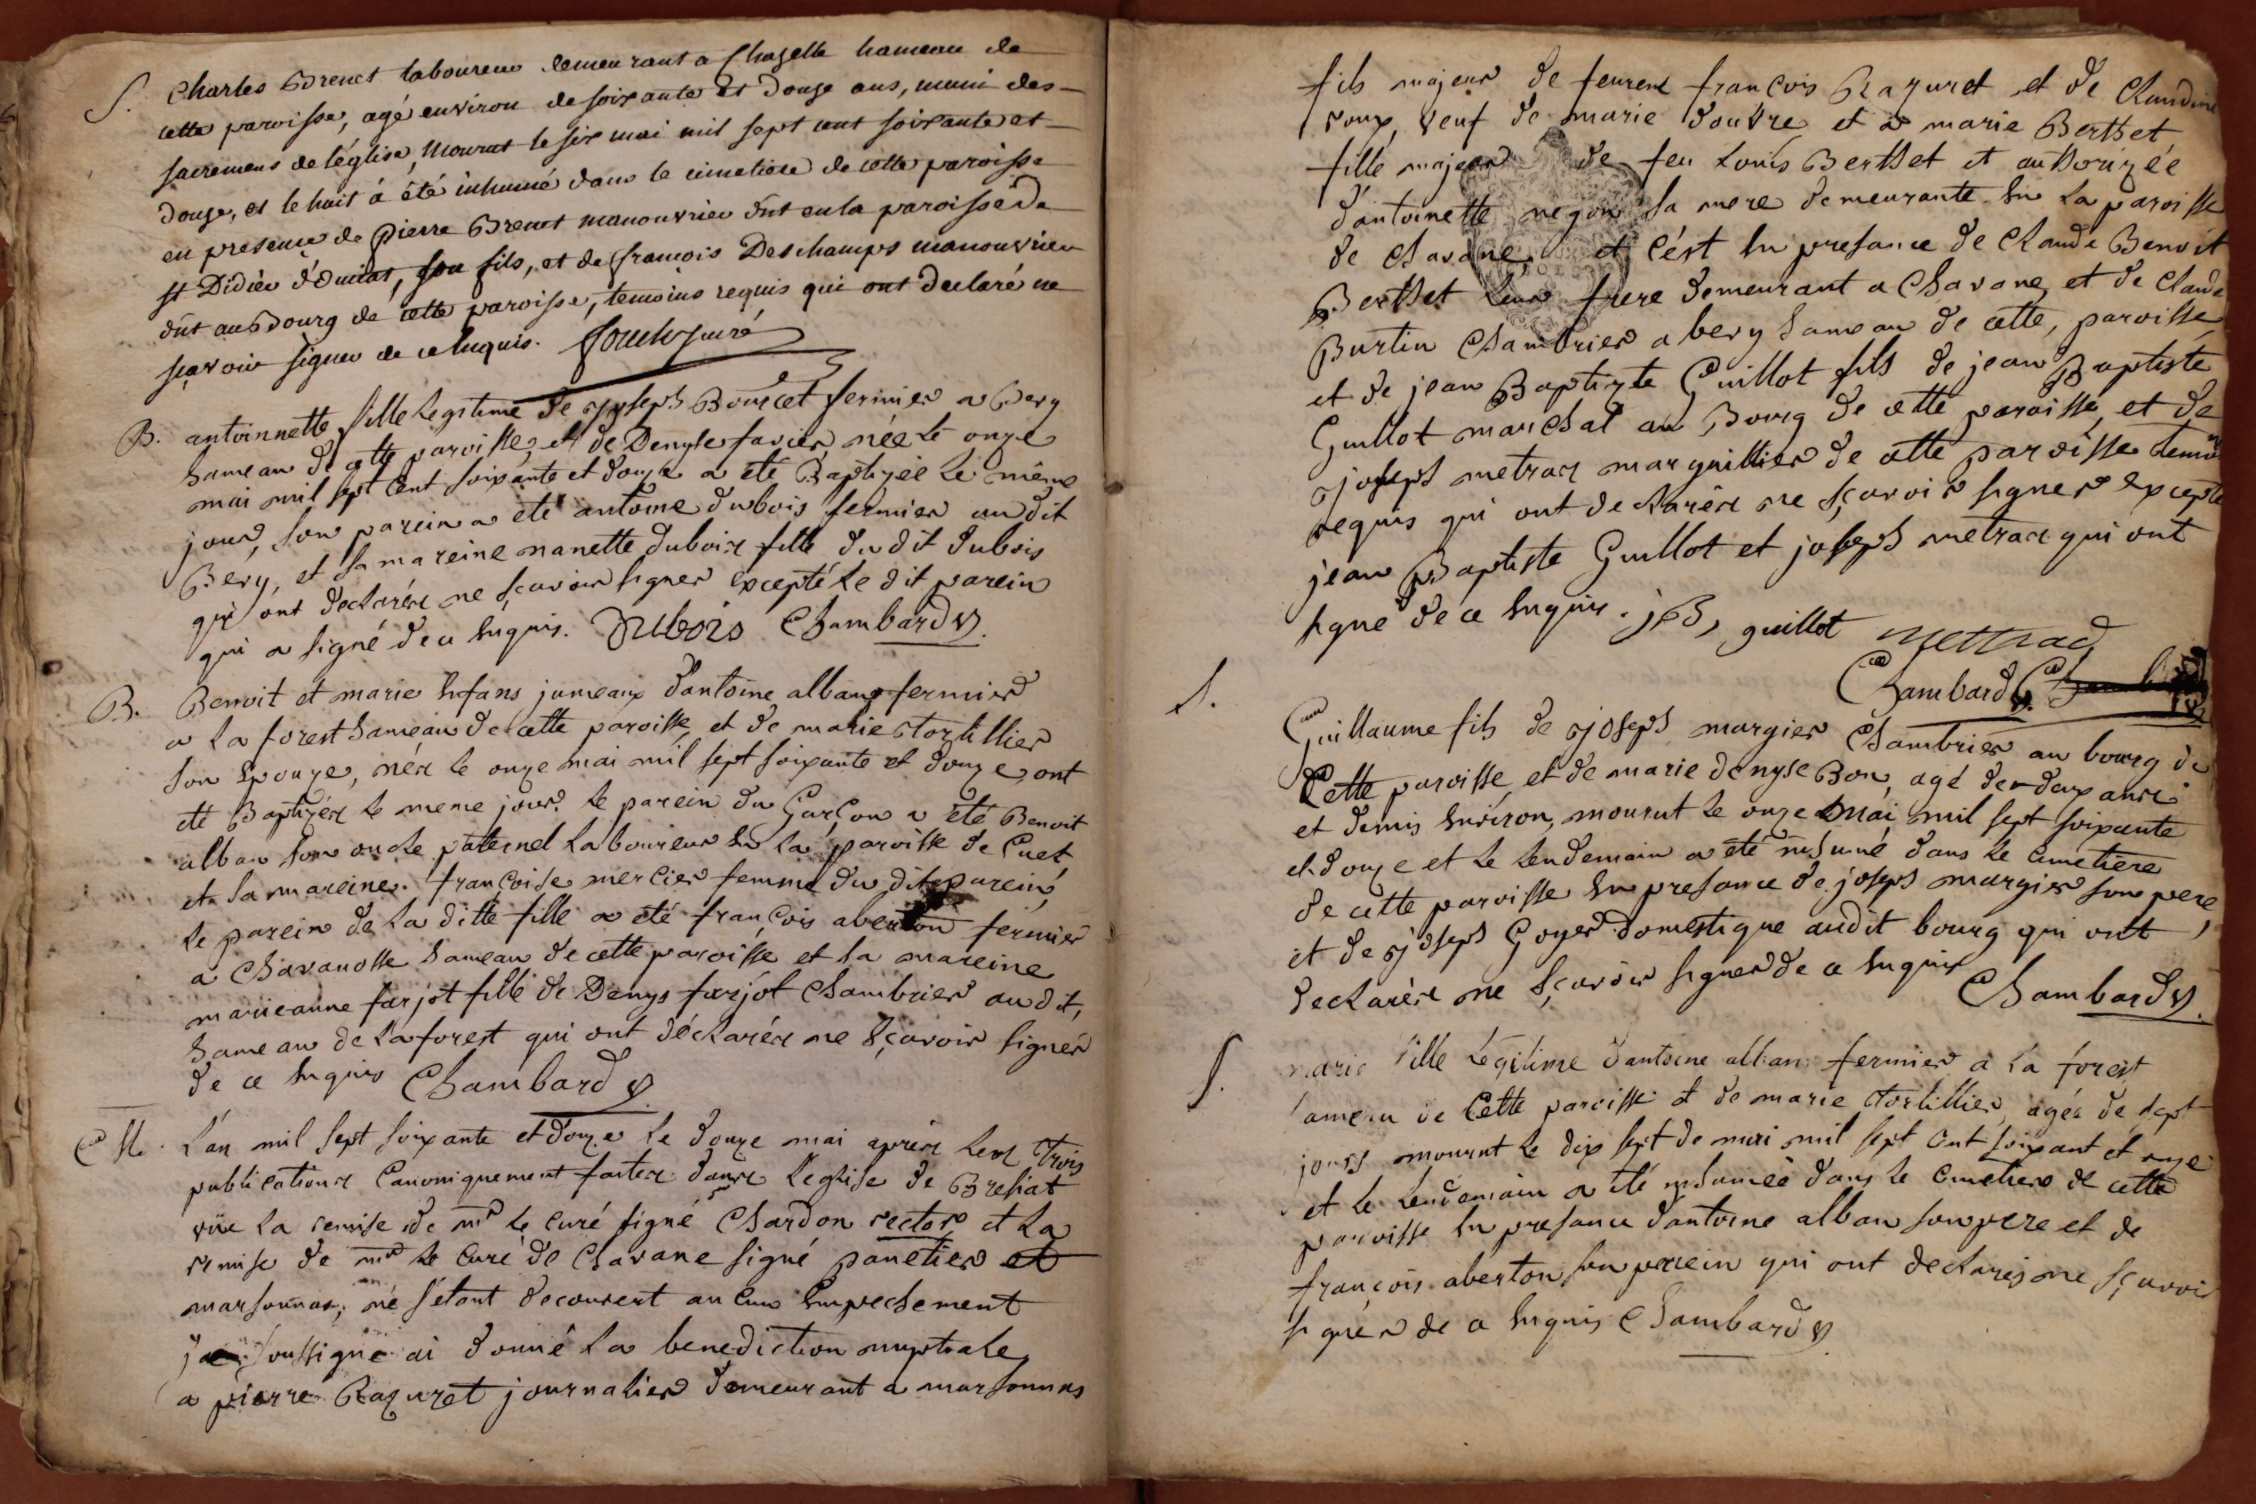 S. Charles Brenet laboureur demeurant a Chazelle hameau de
cette paroisse, agé environ de soixante et douze ans, muni des
sacremens de léglise, mourut le six mai mil sept cent soixante et
douze, et le huit á été inhumé dans le cimetiere de cette paroisse
en presence de pierre Brenet manouvrier dût en la paroisse De
st Didier d'Oussiat, son fils, et de françois Deschamps manouvrier
dût au Bourg de cette paroisse, temoins requis qui ont declaré ne
sçavoir signer de ce Enquis.
B. antoinnette fille Legitime de joseph Bourcet fermier a Bevy
hameau de cette paroisse, et de Denyse favier, née Le onze
mai mil sept Cent soixante et douze a été Baptizée Le même
jour, son parein a eté antoine Dubois fermier au dit
Bevy, et sa mareine nanette Dubois fille du dit Dubois
qui ont declarés ne sçavoir signer excepté Le dit parein
qui a signé de ce Enquis. Dubois Chambard V.
B. Benoit et marie Enfans jumeaux d'antoine alban fermier
a La forest hameau de cette paroisse, et de marie Tortillier
son Epouze, nés le onze mai mil sept soixante et douze, ont
eté Baptizés Le meme jour. Le parein du Garçon a été Benoit
alban son oncle paternel Laboureur En La paroisse de Cuet
et sa mareine françoise mercier femme du dit parein,
Le parein de La ditte fille a été françois aberton fermier
a Chavanosse hameau de cette paroisse et sa mareine
marieanne farjot fille de Denys farjot Chambrier au dit,
hameau de Laforest qui ont déclarés ne sçavoir signer
de ce Enquis Chambard V.
M. L'an mil sept soixante et douze Le douze mai après Les Trois
publications Canoniquement faites dans Leglise de Bresiat
vüe La remise de mr Le Curé signé Chardon rector et La
remise de mr Le Curé de Chavane signé panetier et
marsonnas, ne s'étant decouvert aucun Empechement
je soussigné ai donné La benediction nuptiale
a pierre Razuret journalier demeurant a marsonnas
fils majeur de feurent françois Razuret et de Claudine
roux, veuf de marie douvre et a marie Berthet
fille majeur de feu Louis Berthet et authorizée
d'antoinette negon sa mere demeurante En La paroisse
de Chavane, et c'est En presance de Claude Benoit
Berthet Leur frere demeurant a Chavane, et de Claude
Burtin Chambrier a bevy hameau de cette, paroisse,
et de jean Baptizte Guillot fils de jean Baptiste
Guillot marchal au Bourg de cette paroisse, et de
joseph metrad marguillier de cette paroisse temoins
requis qui ont declarés ne sçavoir signer excepté
jean Baptiste Guillot et joseph metrad qui ont
signé de ce Enquis. jB, guillot metrad
Chambard V.
S. Guillaume fils de joseph margier Chambrier au bourg de
Cette paroisse, et de marie denyse Bon, agé de deux ans
et demis Environ, mourut Le onze mai mil sept soixante
et douze et Le Lendemain a été inhumé dans Le Cimetiere
de cette paroisse En presance de joseph margier son pere,
et de joseph Goyer domestique audit bourg qui ont
declarés ne sçavoir signer de ce Enquis Chambard V.
S. marie fille Légitime d'antoine alban fermier a La forest
hameau de Cette paroisse et de marie Tortillier, agée de sept
jours mourut Le dix sept de mai mil sept Cent soixant et
et Le Lendemain a été inhumée dans Le Cimetiere de cette
paroisse En presance d'antoine alban son pere et de
françois aberton, son parein qui ont declarés ne sçavoir
signer de ce Enquis Chambard V.